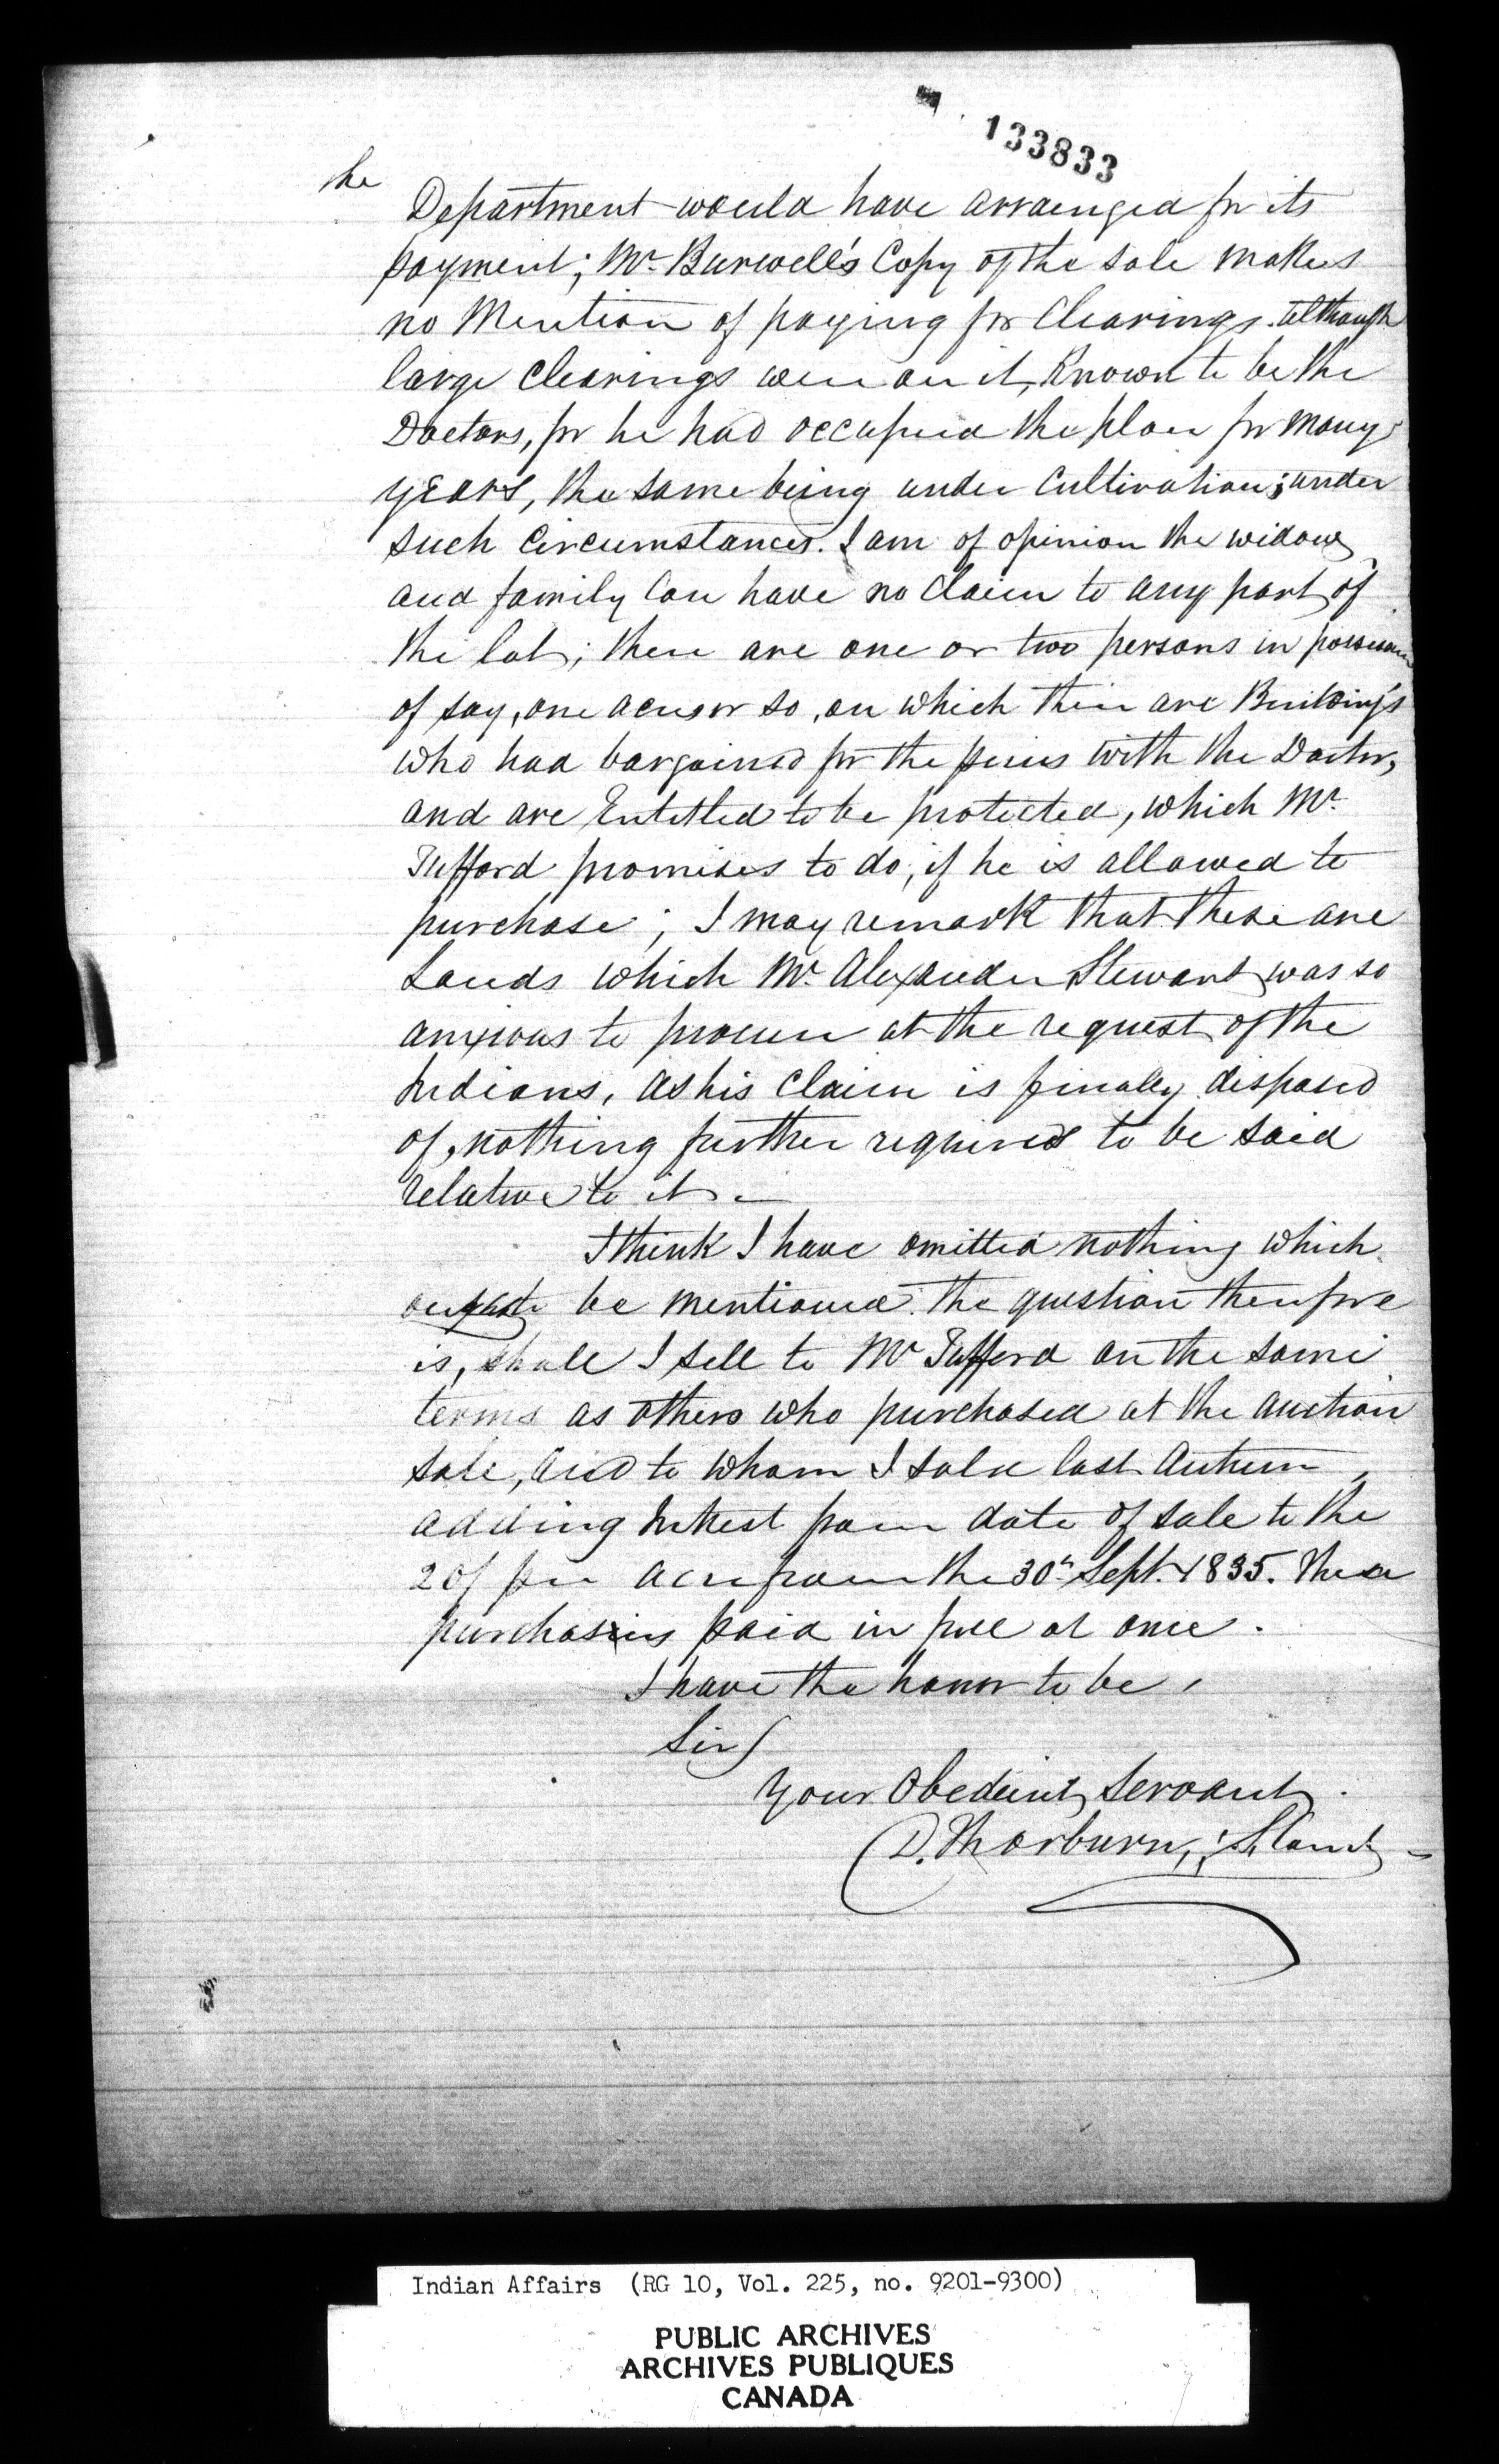 133833
the
Department would have arranged for its
payment; Mr. Burwell's Copy of the sale makes
no Mention of paying for Clearings. although
large Clearings were on it, Known to be the
Doctors, for he had occupied the place for many
years, the same being under Cultivation; under
such Circumstances. I am of opinion the widow
and family Can have no Claim to any part of
the lot; there are one or two persons in possession
of say, one acre or so, on which there are Buildings
who had bargained for the pieces with the Doctor,
and are Entitled to be protected, which Mr.
Tufford promises to do, if he is allowed to
purchase; I may remark that these are
Lands which Mr. Alexander Stewart was so
anxious to procure at the request of the
Indians, as his Claim is finally disposed
of, nothing further required to be said
relative to it. —
I think I have omitted nothing which
ought to be mentioned. The question therefore
is, shall I sell to Mr Tufford on the same
terms as others who purchased at the auction
sale, and to whom I sold last Autumn,
adding Interest from date of sale to the
20/ per acre from the 30th Sept. 1835. These
purchasers paid in full at once.
I have the honor to be,
Sir
Your Obedient Servant.
D. Thorburn,
Indian Affairs (RG 10, Vol. 225, no. 9201-9300)
PUBLIC ARCHIVES
ARCHIVES PUBLIQUES
CANADA